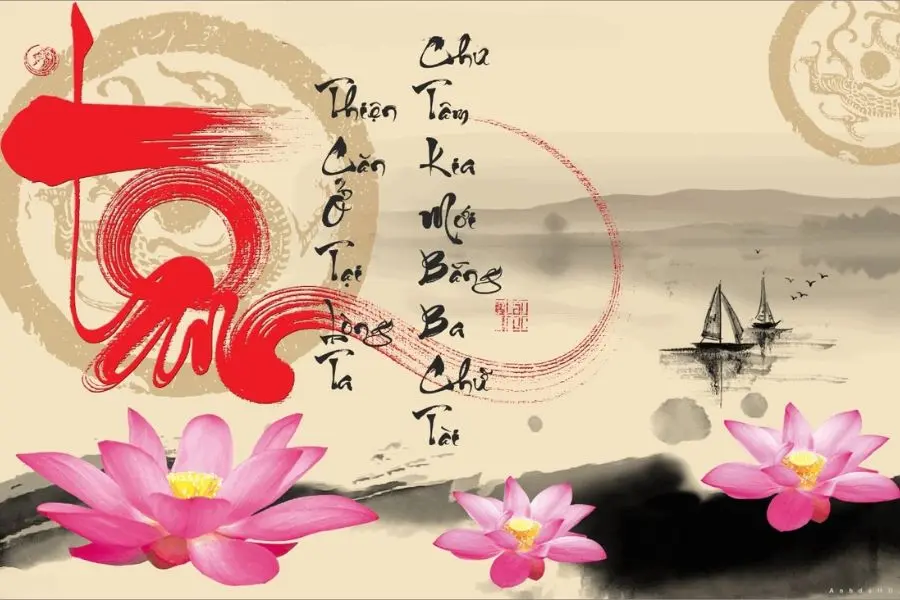 Tâm
Thiện Căn Ở Tại Lòng Ta
Chư Tâm Kia Mới Bằng Ba Chữ Tài